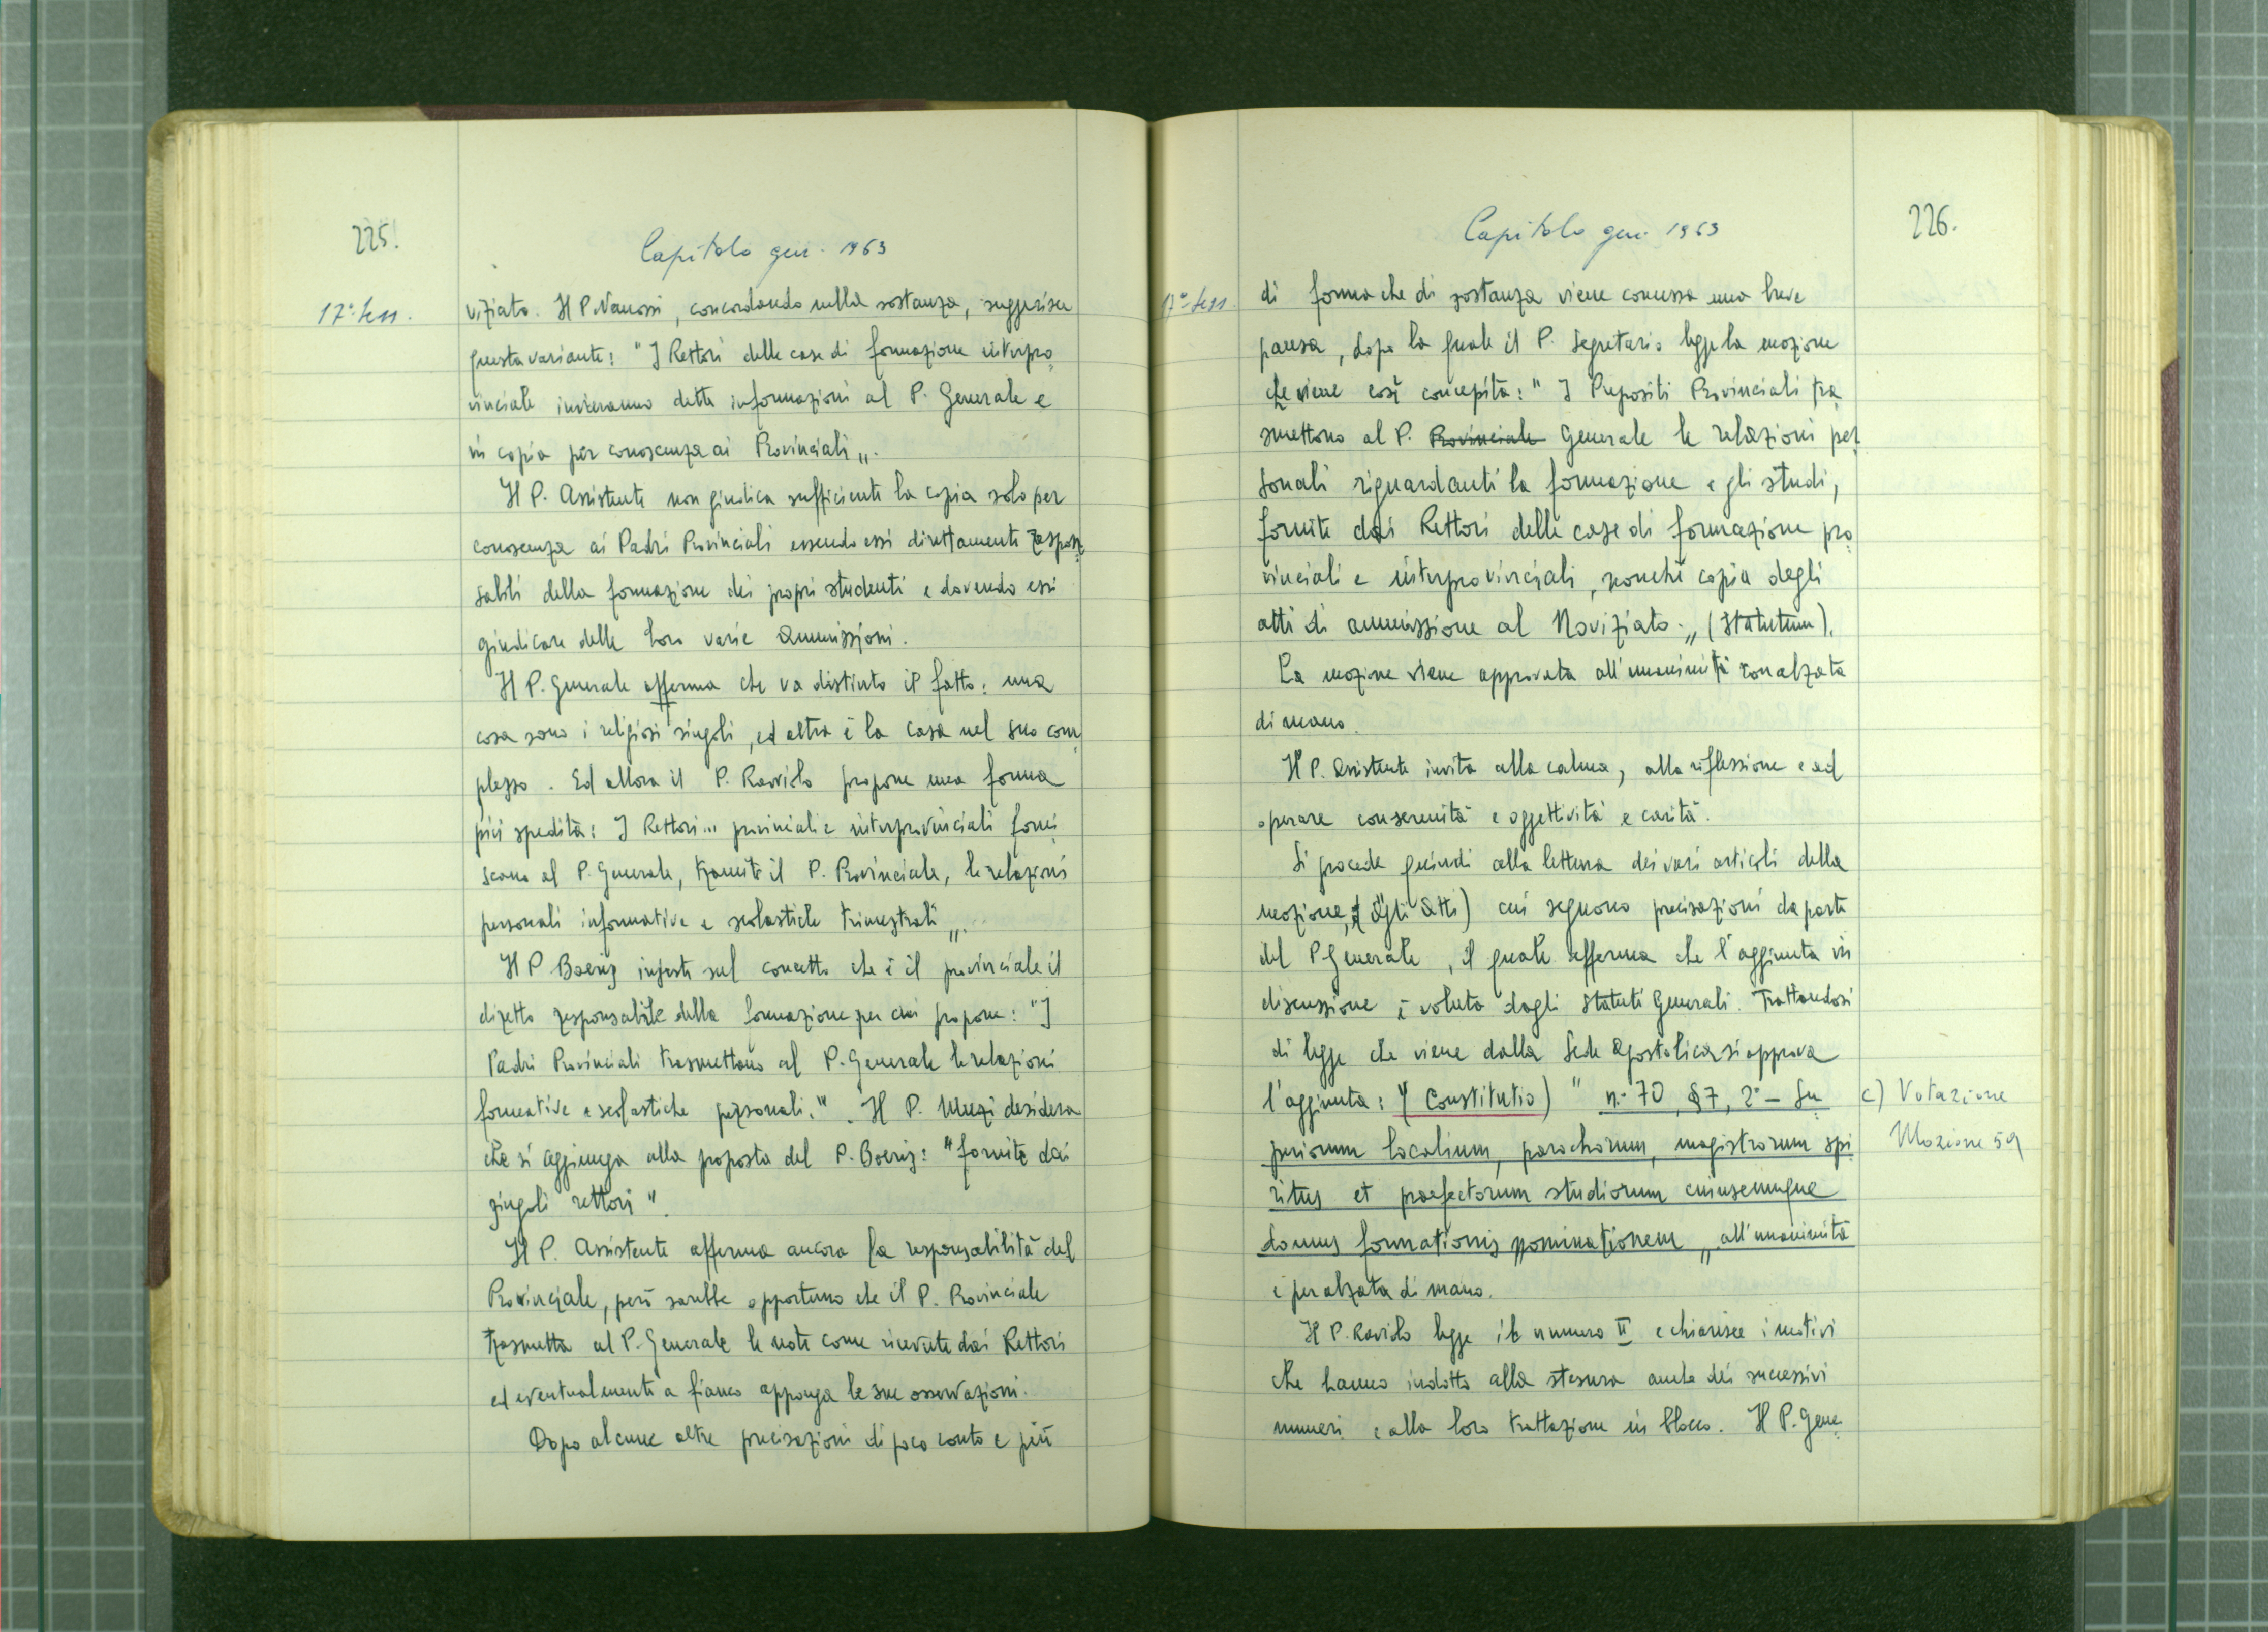 225.
Capitolo gen. 1963
17ª Sess.
viziato. Il P. Vanossi, concordando nella sostanza, suggerisce
questa variante: "I Rettori delle case di formazione interpro
vinciale invieranno dette informazioni al P. Generale e
in copia per conoscenza ai Provinciali„.
Il P. Assistente non giudica sufficiente la copia solo per
conoscenza ai Padri Provinciali essendo essi direttamente respon
sabili della formazione dei propri studenti e dovendo essi
giudicare delle loro varie ammissioni.
Il P. Generale afferma che va distinto il fatto: una
cosa sono i religiosi singoli, ed altra è la casa nel suo com
plesso. Ed allora il P. Raviolo propone una forma
più spedita: I Rettori... provinciali e interprovinciali forni
scano al P. Generale, tramite il P. Provinciale, le relazioni
personali informative e scolastiche trimestrali„.
Il P. Boeris insiste sul concetto che è il provinciale il
diretto responsabile della formazione per cui propone: "I
Padri Provinciali trasmettano al P. Generale le relazioni
formative e scolastiche personali.". Il P. Muzi desidera
che si aggiunga alla proposta del P. Boeris: "fornite dai
singoli rettori".
Il P. Assistente afferma ancora la responsabilità del
Provinciale, però sarebbe opportuno che il P. Provinciale
trasmetta al P. Generale le note come ricevute dai Rettori
ed eventualmente a fianco apponga le sue osservazioni.
Dopo alcune altre precisazioni di poco conto e più
226.
Capitolo gen. 1963
17ª Sess.
di forma che di sostanza viene concessa una breve
pausa, dopo la quale il P. Segretario legge la mozione
che viene così concepita: "I Prepositi Provinciali tra
smettono al P. Provinciale Generale le relazioni per
sonali riguardanti la formazione e gli studi,
fornite dai Rettori delle case di formazione pro
vinciali e interprovinciali, nonchè copia degli
atti di ammissione al Noviziato.„ (Statutum).
La mozione viene approvata all'unanimità con alzata
di mano.
Il P. Assistente invita alla calma, alla riflessione e ad
operare con serenità e oggettività e carità.
Si procede quindi alla lettura dei vari articoli della
mozione, (Agli Atti) cui seguono precisazioni da parte
del P. Generale, il quale afferma che l'aggiunta in
discussione è voluta dagli Statuti Generali. Trattandosi
di legge che viene dalla Sede Apostolica si approva
l'aggiunta: (Constitutio) " n. 70, §7, 2° - Su
periorum localium, parochorum, magistrorum spi
ritus et praefectorum studiorum cuiuscumque
domus formationis nominationem„ all'unanimità
e per alzata di mano.
c) Votazione
Mozione 59
Il P. Raviolo legge il numero II e chiarisce i motivi
che hanno indotto alla stesura anche dei successivi
numeri e alla loro trattazione in blocco. Il P. Gene